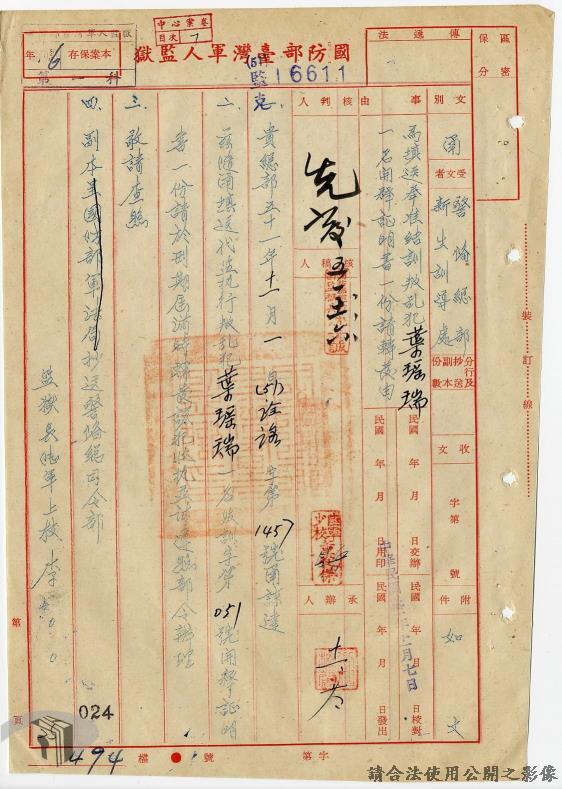 國防部臺灣軍人監獄
中心業卷
目次 7
本案保存 16 年
第一科
(51)監 16611
保密區分
傳遞法
文別 函
受文者 警備總部新生訓導處
事由 為填送奉准結訓叛乱犯葉瑶瑞一名開釋証明書一份請轉發由
分行及抄送副本份數
收文 字第 號
附件 如文
核判人
核稿人
承辦人
民國 年 月 日交辦
民國 年 月 日用印
民國 年 月 日校對
民國 年 月 日發出
裝訂線
一、貴總部五十一年十一月一日(51)
字第1457號函諒達
二、茲隨函填送代監执行叛乱犯葉瑶瑞一名 字第051號開釋証明
書一份請於刑期屆滿時轉發該犯收执並請逕
三、敬請查照
四、副本呈國防部軍法局抄送警備總司令部
監獄長陸軍上校 李
024
494
檔 號
字第
第 頁
請合法使用公開之影像